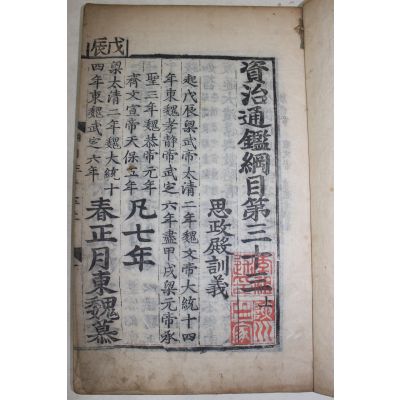 資治通鑑綱目第三十三
思政殿訓義
起戊辰梁武帝太清二年魏文帝大統十四
年東魏孝静帝武定六年盡甲戌梁元帝承
聖三年魏恭帝元年
齊文宣帝天保五年
凡七年
戊辰
梁太清二年魏大統十
四年東魏武定六年
春正月東魏慕